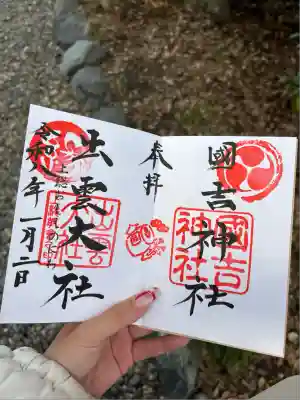 奉拝
國吉神社
國吉神社
出雲大社
出雲
令和八年一月二日